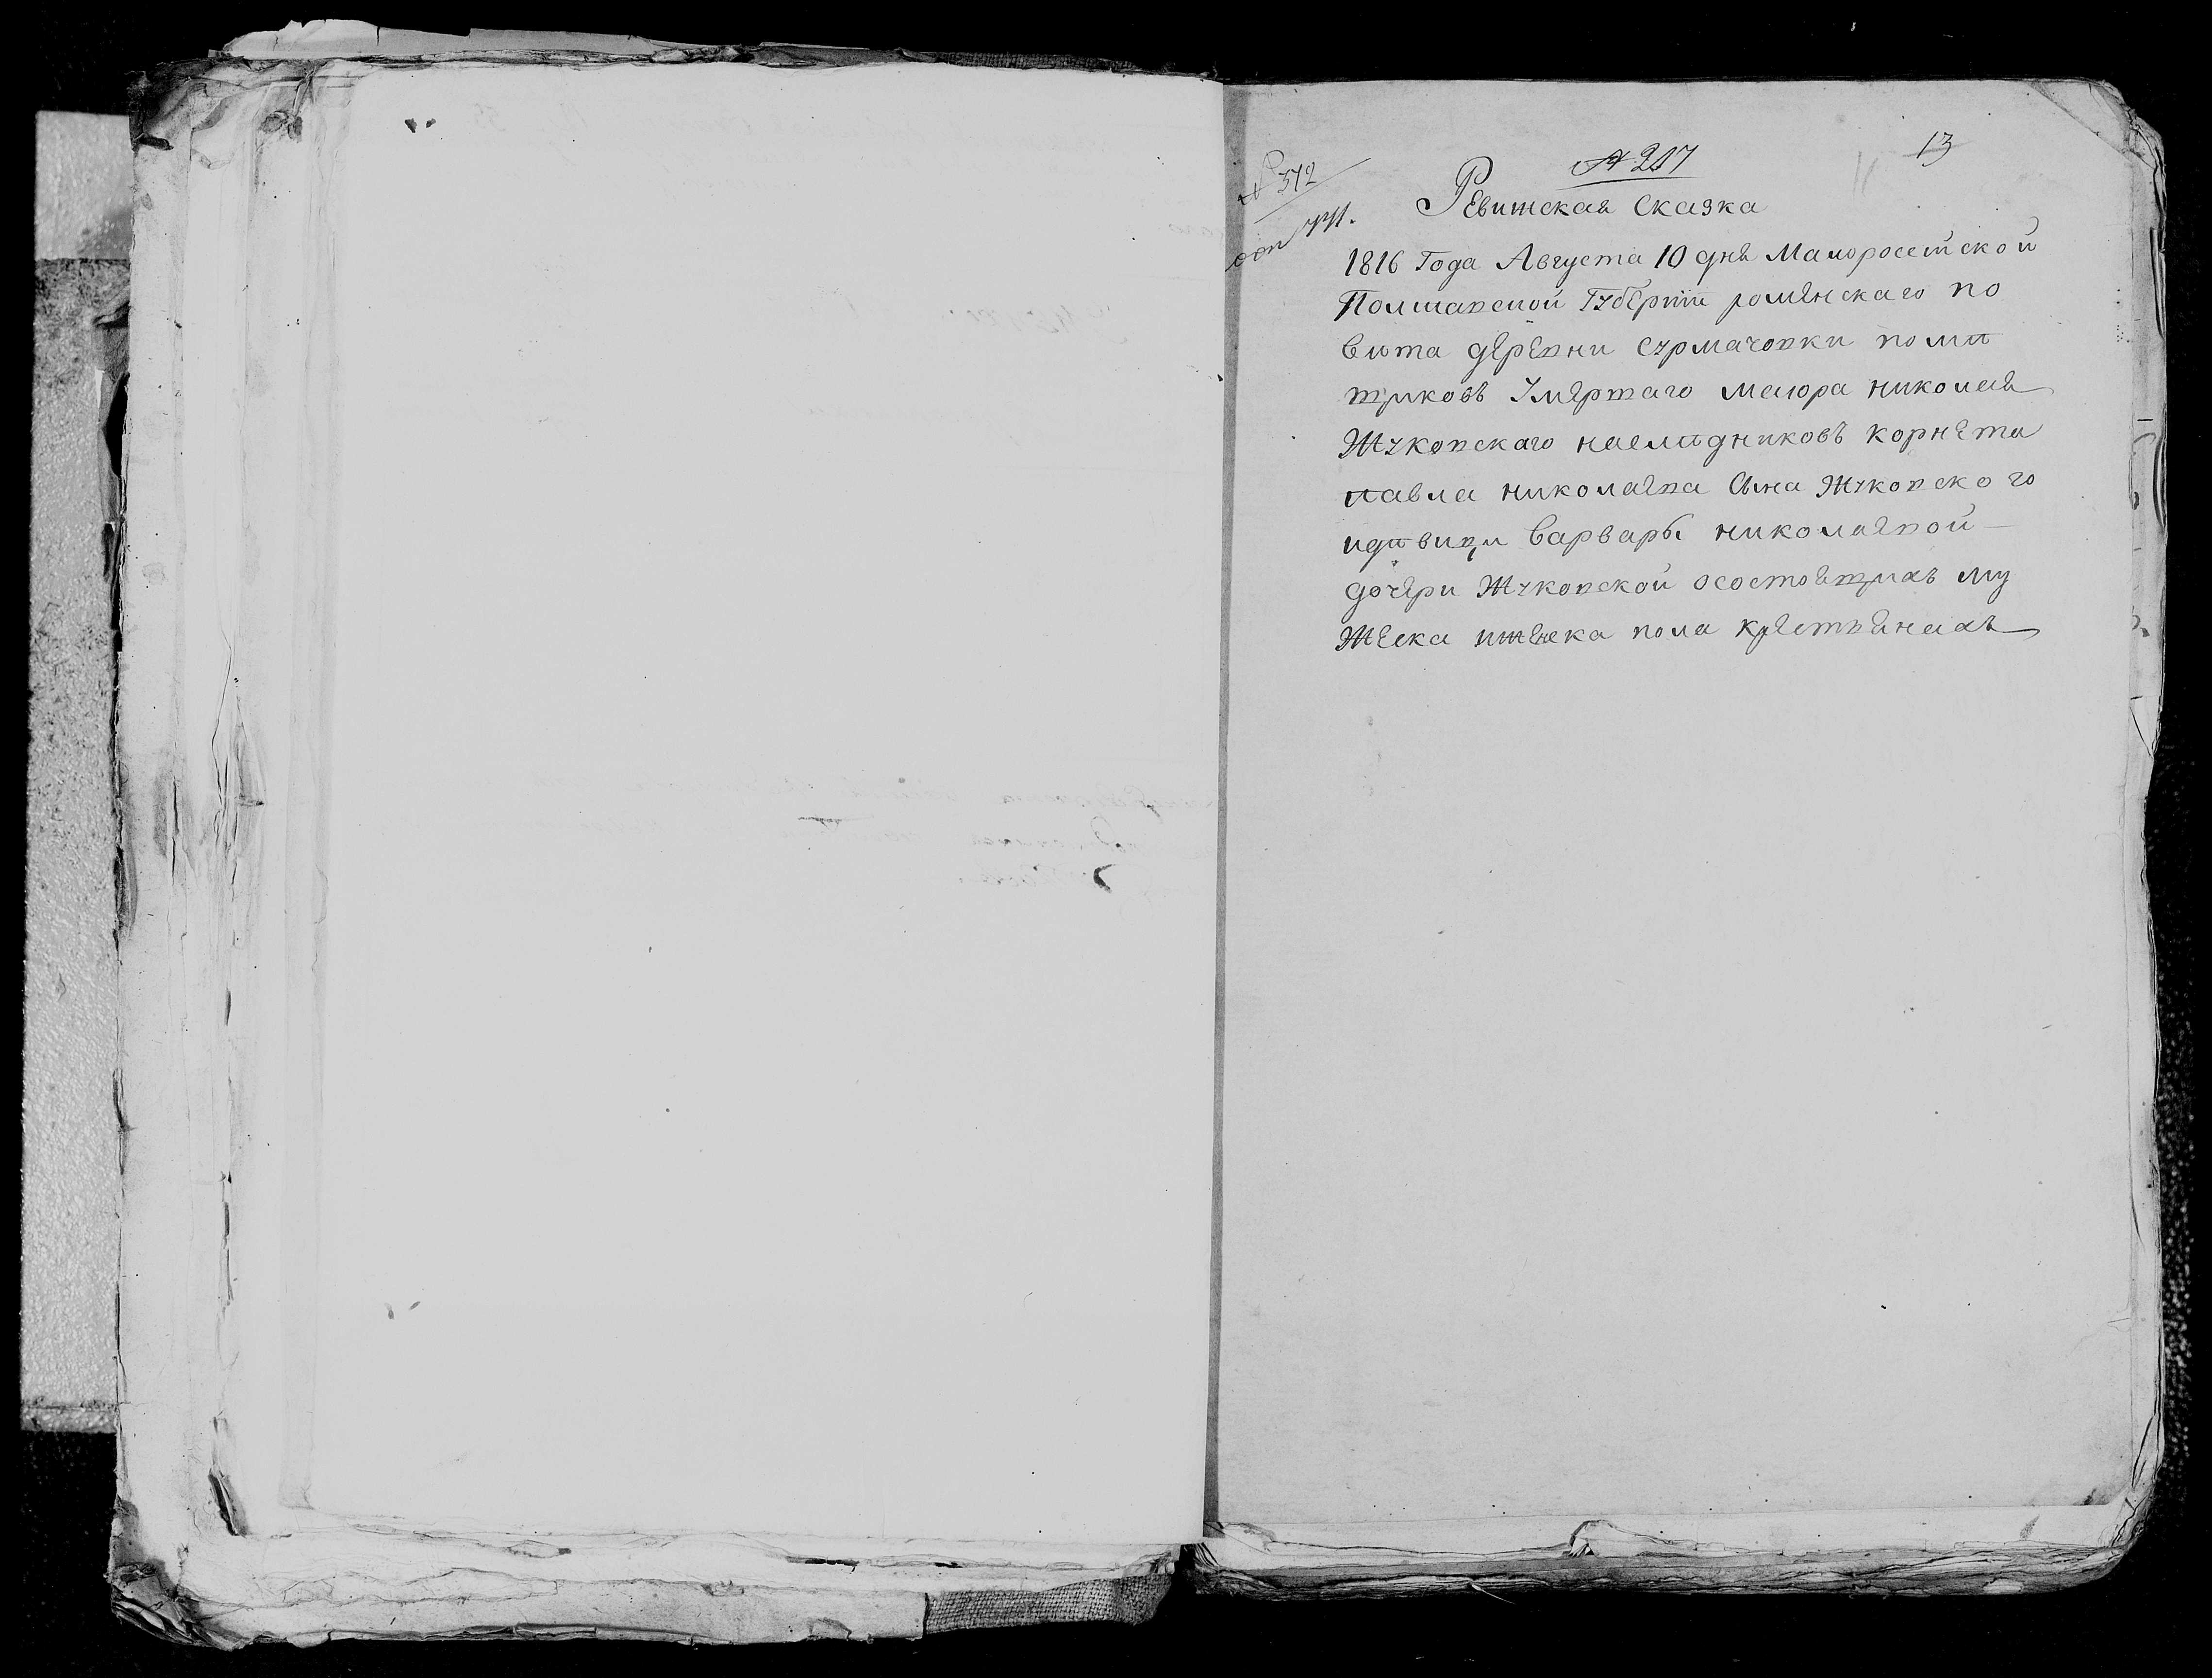 № 217
13
№ 512
Ревижская Сказка
1816 Года Августа 10 дня Малоросейской
Полтавской Губерніи роменскаго по
вѣта деревни Сурмачовки помѣ
щиковъ Умершаго маіора николая
Жуковскаго наслѣдниковъ корнета
павла николаева Сына Жуковского
идѣвици Варвары николаевой
дочери Жуковской осостоящихъ му
жеска иженска пола крестьянехъ